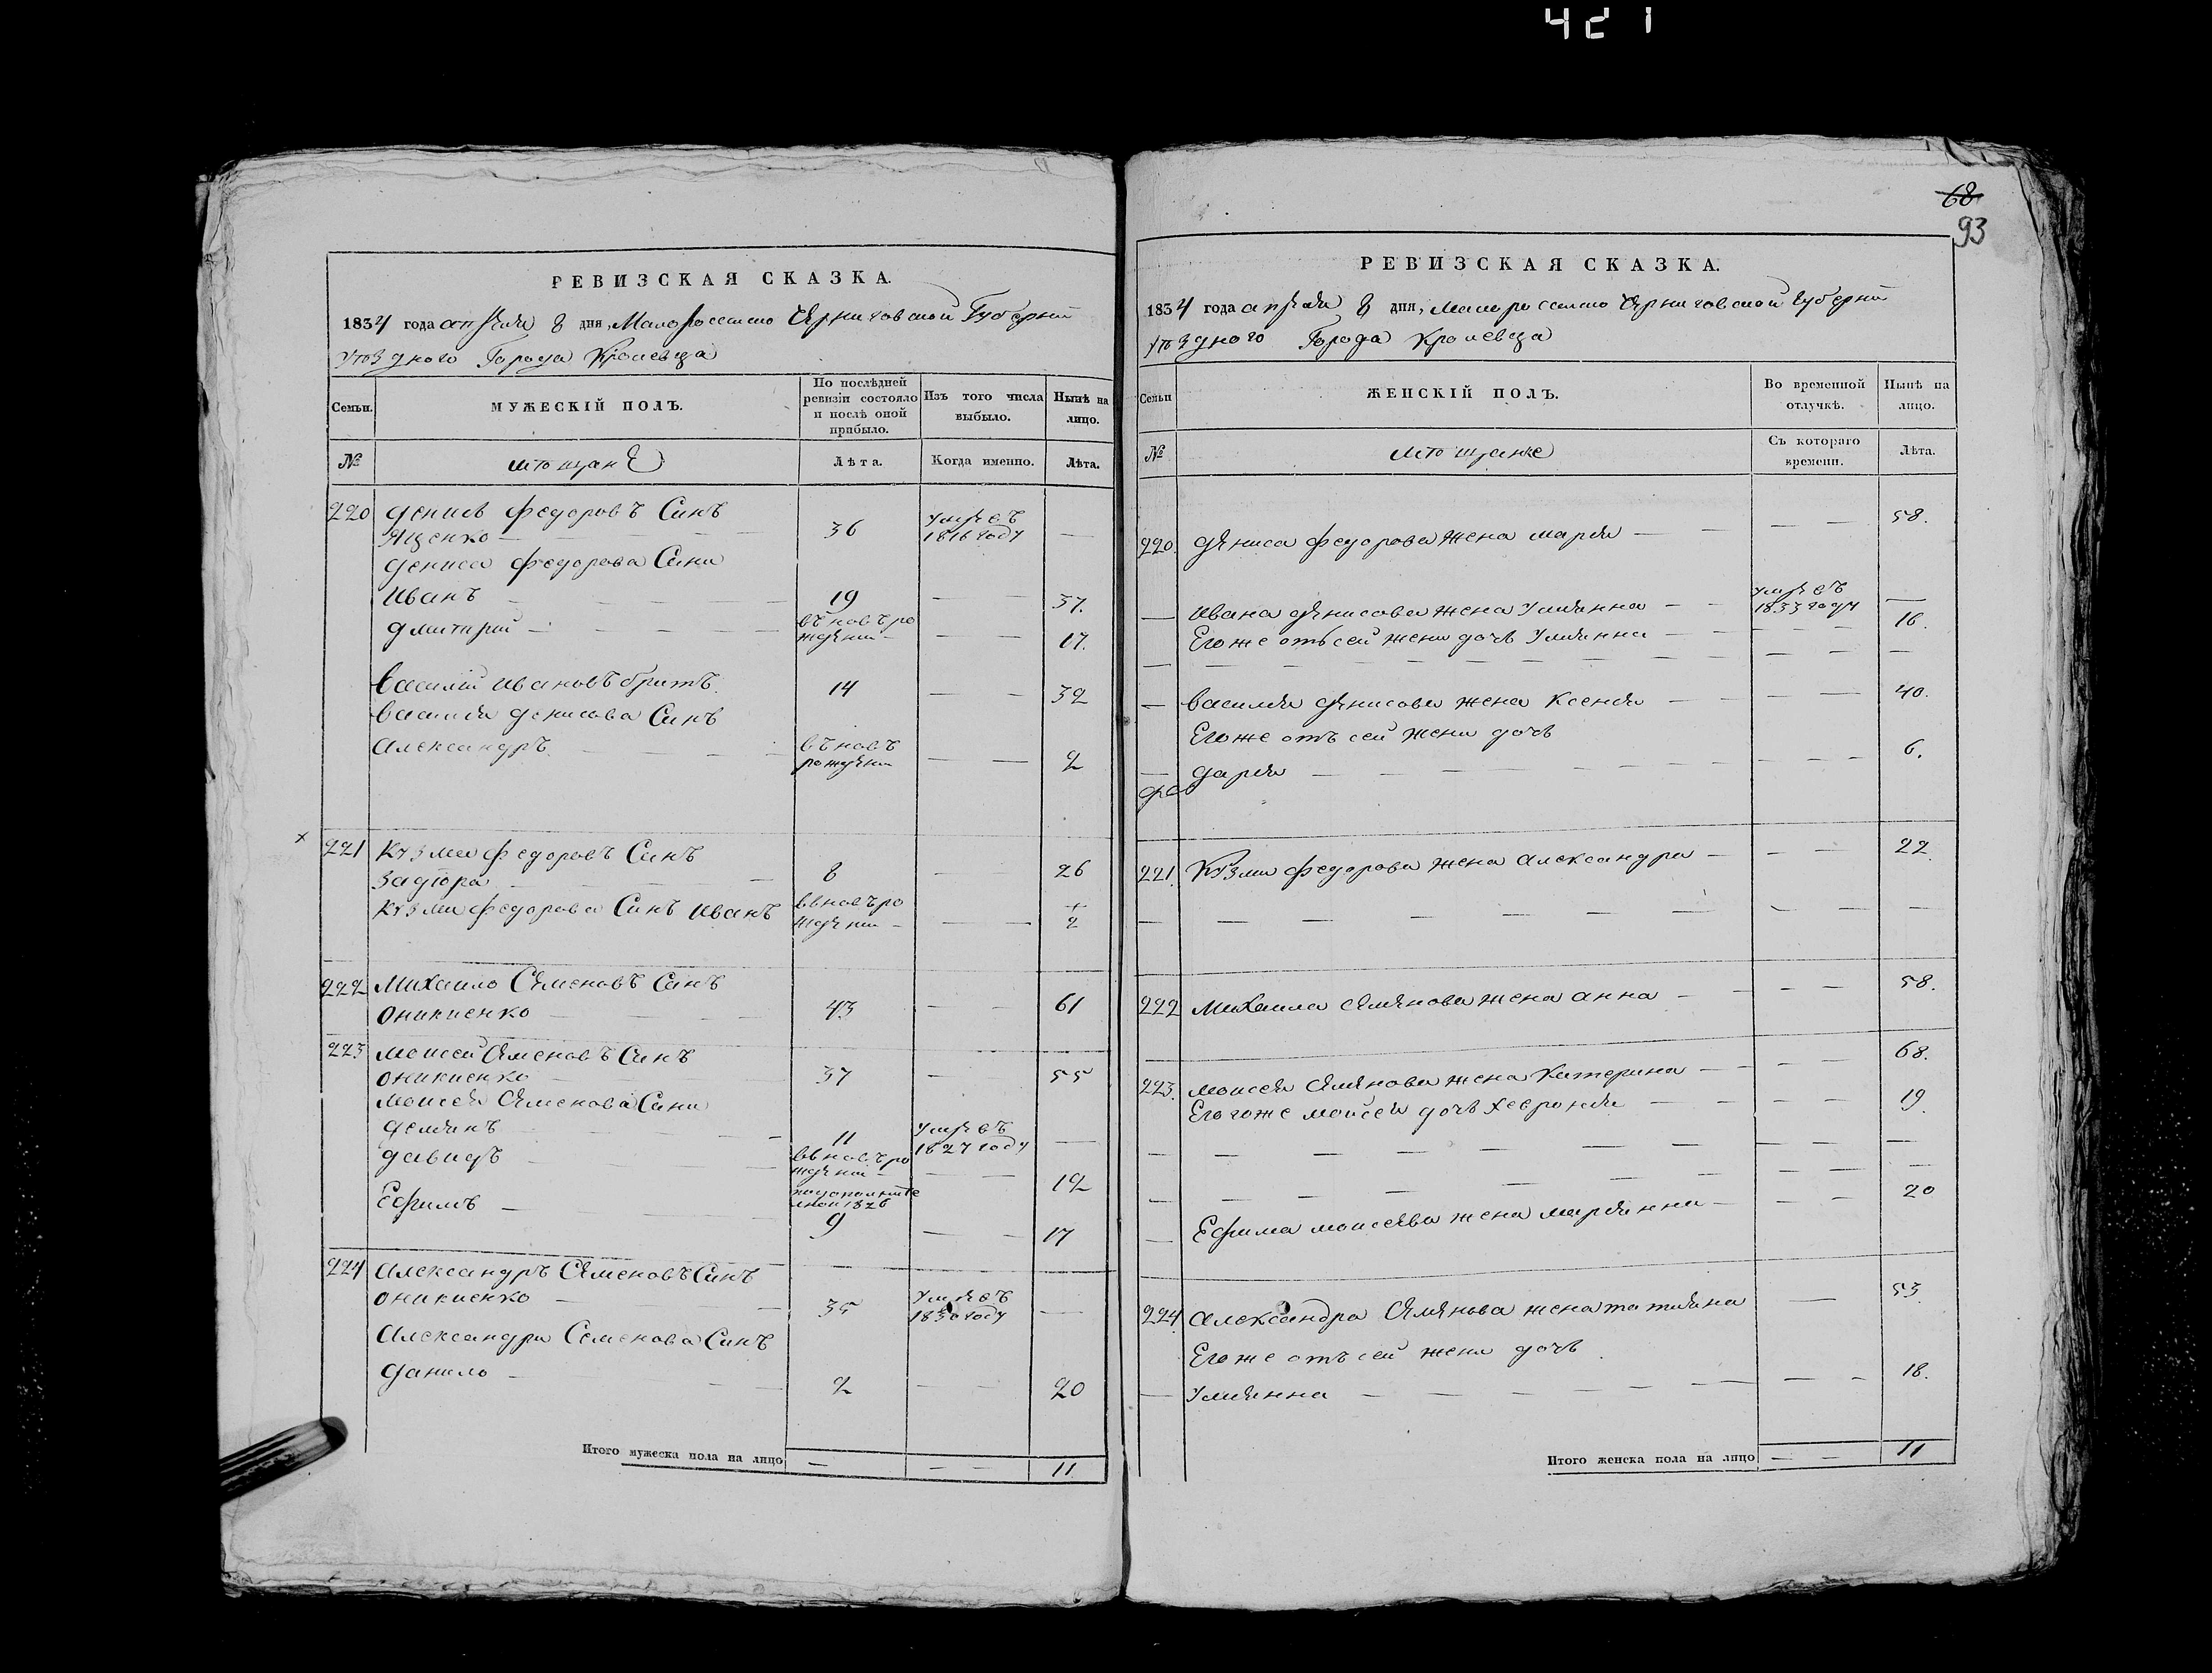 421
РЕВИЗСКАЯ СКАЗКА.
1834 года апреля 8 дня, Малороссийско Черниговской Губернии
уѣздного Города Кролевца
Семьи.
МУЖЕСКІЙ ПОЛЪ.
По послѣдней ревизіи состояло и послѣ оной прибыло.
Изъ того числа выбыло.
Нынѣ на лицо.
№
мѣщане
Лѣта.
Когда именно.
Лѣта.
220 Денисъ Федоровъ Синъ
Яценко — 36 умре въ 1816 году —
Дениса Федорова Сини
Иванъ — 19 — — 37.
Дмитрий — въ новъ рождении — — 17.
Василій Ивановъ братъ. 14 — — 32
Василия Денисова Синъ
Александръ — въ новъ рождении — — 2
× 221 Кузма Федоровъ Синъ
Задюра — 8 — 26
Кузми Федорова Синъ Иванъ въ новъ рождении — — + 2
222 Михайло Семеновъ Синъ
Оникиенко — 43 — — 61
223 Моисей Семеновъ Синъ
Оникиенко — 37 — 55
Моисея Семенова Сини
Демянъ — 11 умре въ 1827 году —
Давидъ — въ новъ рождении — — 12
Ефимъ — 1826 9 — — 17
224 Александръ Семеновъ Синъ
Оникиенко — 35 умре въ 1830 году —
Александра Семенова Синъ
Данило — 2 — — 20
Итого мужеска пола на лицо — — — 11
68
93
РЕВИЗСКАЯ СКАЗКА.
1834 года апреля 8 дня, Малоросийско Черниговской Губернии
уѣздного Города Кролевца
Семьи
ЖЕНСКІЙ ПОЛЪ.
Во временной отлучкѣ.
Нынѣ на лицо.
№
мѣщанке
Съ котораго времени.
Лѣта.
220. Дениса Федорова жена Мария — — — 58.
— Ивана Денисова жена Улиянна — умре въ 1833 году —
Его же отъ сей жени дочь Улиянна — — — 16.
— Василия Денисова жена Ксения — — — 40.
Его же отъ сей жени дочь
— Дария — — — 6.
221. Кузми Федорова жена Александра — — — 22.
222 Михаила Семянова жена Анна — — — 58.
223. Моисея Семянова жена Катерина — — — 68.
Его же Моисея дочь Хеврония — — — 19
— Ефима Моисеева жена Мариянна — — — 20
224. Александра Семянова жена Татияна — 53.
Его же отъ сей жени дочь
— Улиянна — — — 18.
Итого женска пола на лицо — — 11